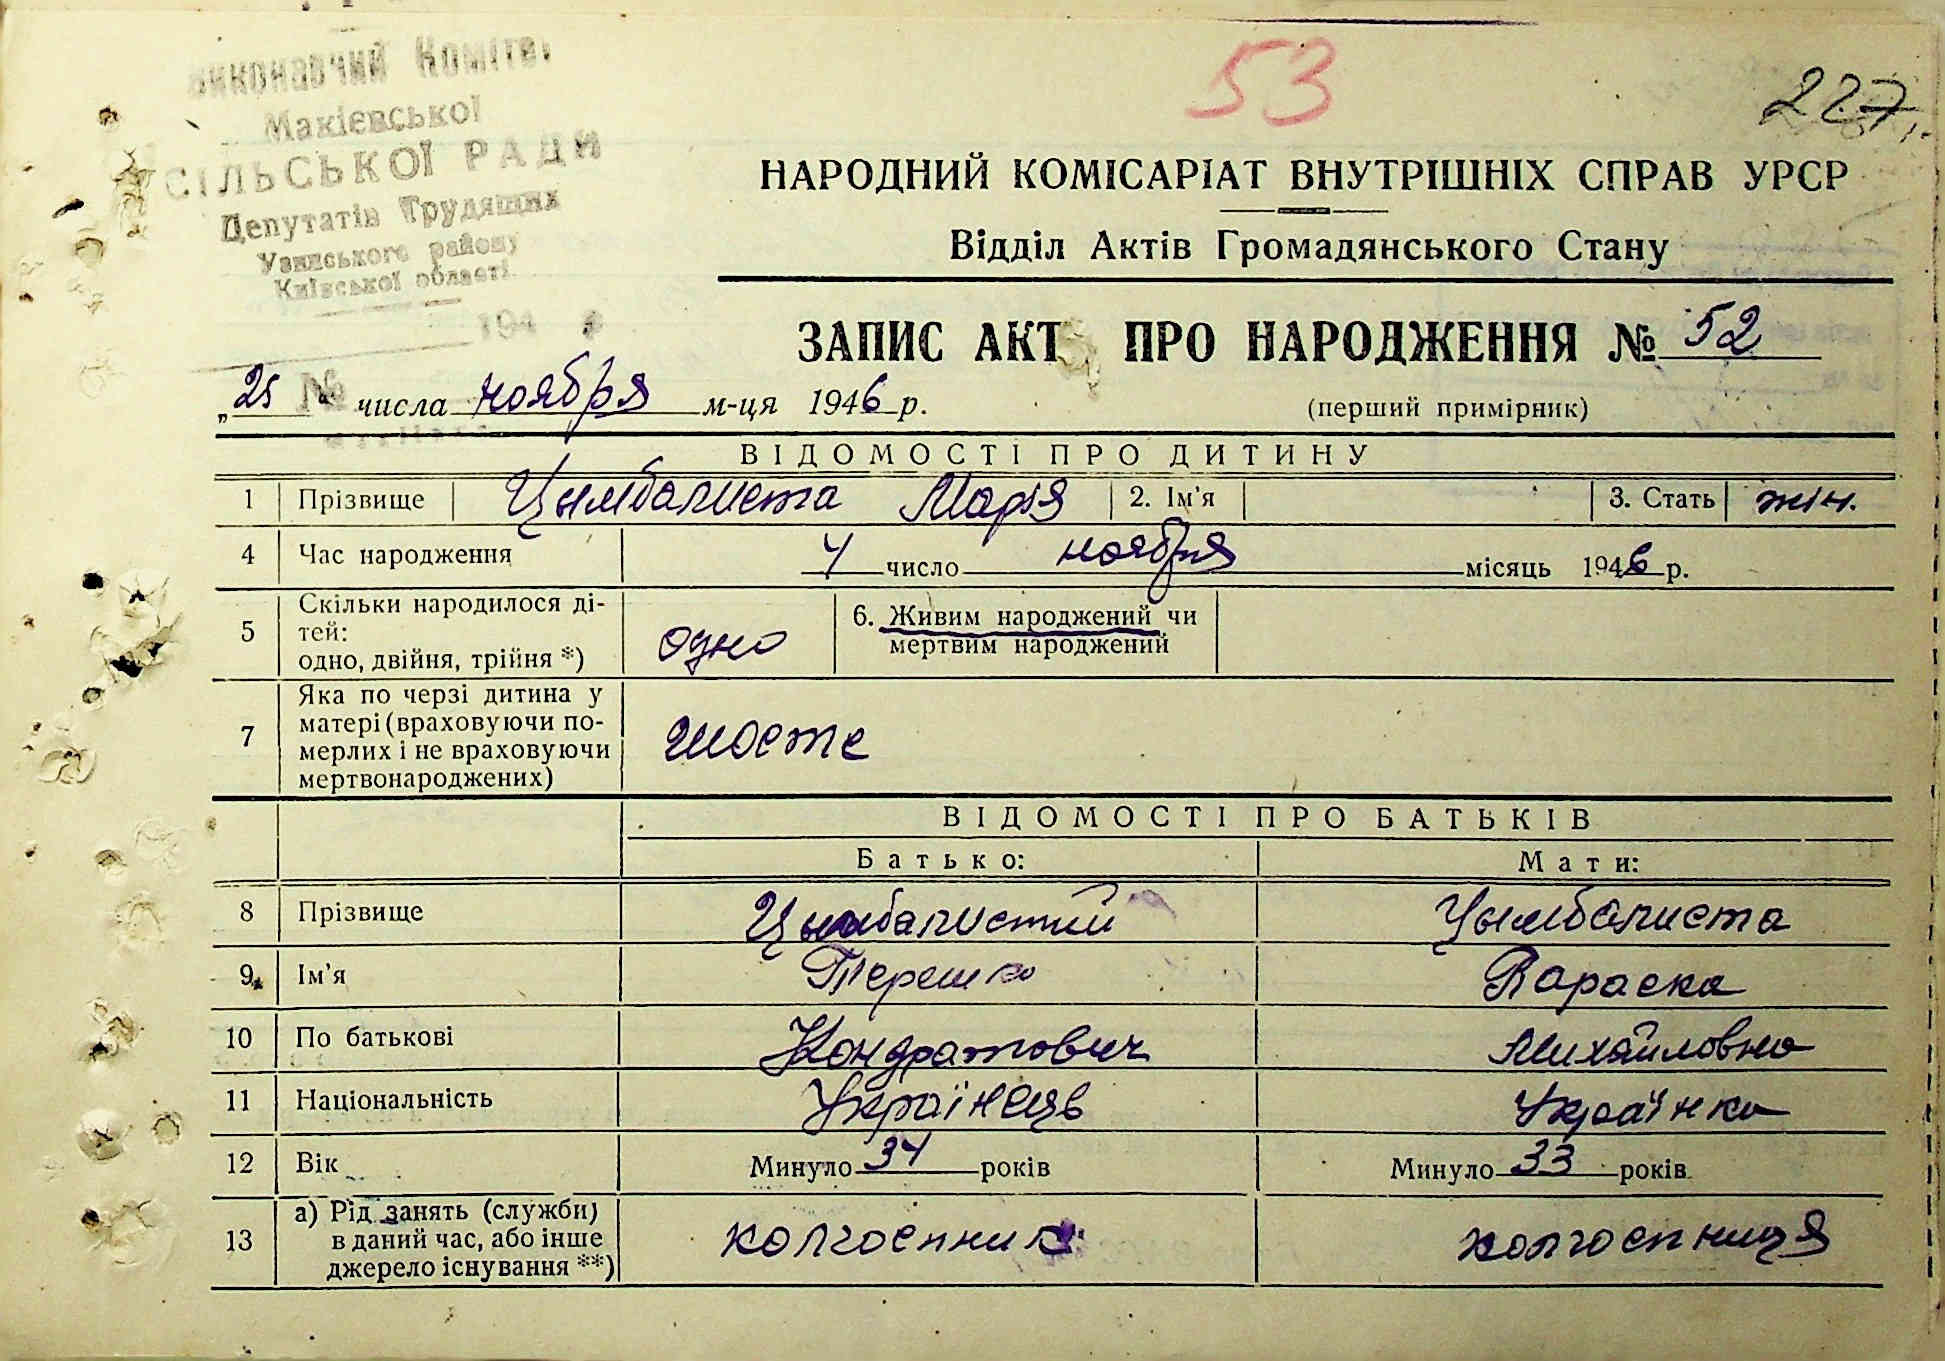 Виконавчий Комітет
Макієвської
СІЛЬСЬКОЇ РАДИ
Депутатів Трудящих
району
Київської області
194
№
53
227
НАРОДНИЙ КОМІСАРІАТ ВНУТРІШНІХ СПРАВ УРСР
Відділ Актів Громадянського Стану
ЗАПИС АКТ ПРО НАРОДЖЕННЯ № 52
„25“ числа ноября м-ця 1946 р.
(перший примірник)
ВІДОМОСТІ ПРО ДИТИНУ
1 Прізвище Цымбалиста Марія 2. Ім'я 3. Стать жін.
4 Час народження 4 число ноября місяць 1946 р.
5 Скільки народилося ді-
тей:
одно, двійня, трійня *) одно
6. Живим народжений чи
мертвим народжений
7 Яка по черзі дитина у
матері (враховуючи по-
мерлих і не враховуючи
мертвонароджених) шосте
ВІДОМОСТІ ПРО БАТЬКІВ
Батько: Мати:
8 Прізвище Цымбалистий Цымбалиста
9 Ім'я Терешко Параска
10 По батькові Кондратович Михайловна
11 Національність Українець Українка
12 Вік Минуло 34 років Минуло 33 років
13 а) Рід занять (служби)
в даний час, або інше
джерело існування **) колгоспник колгоспниця